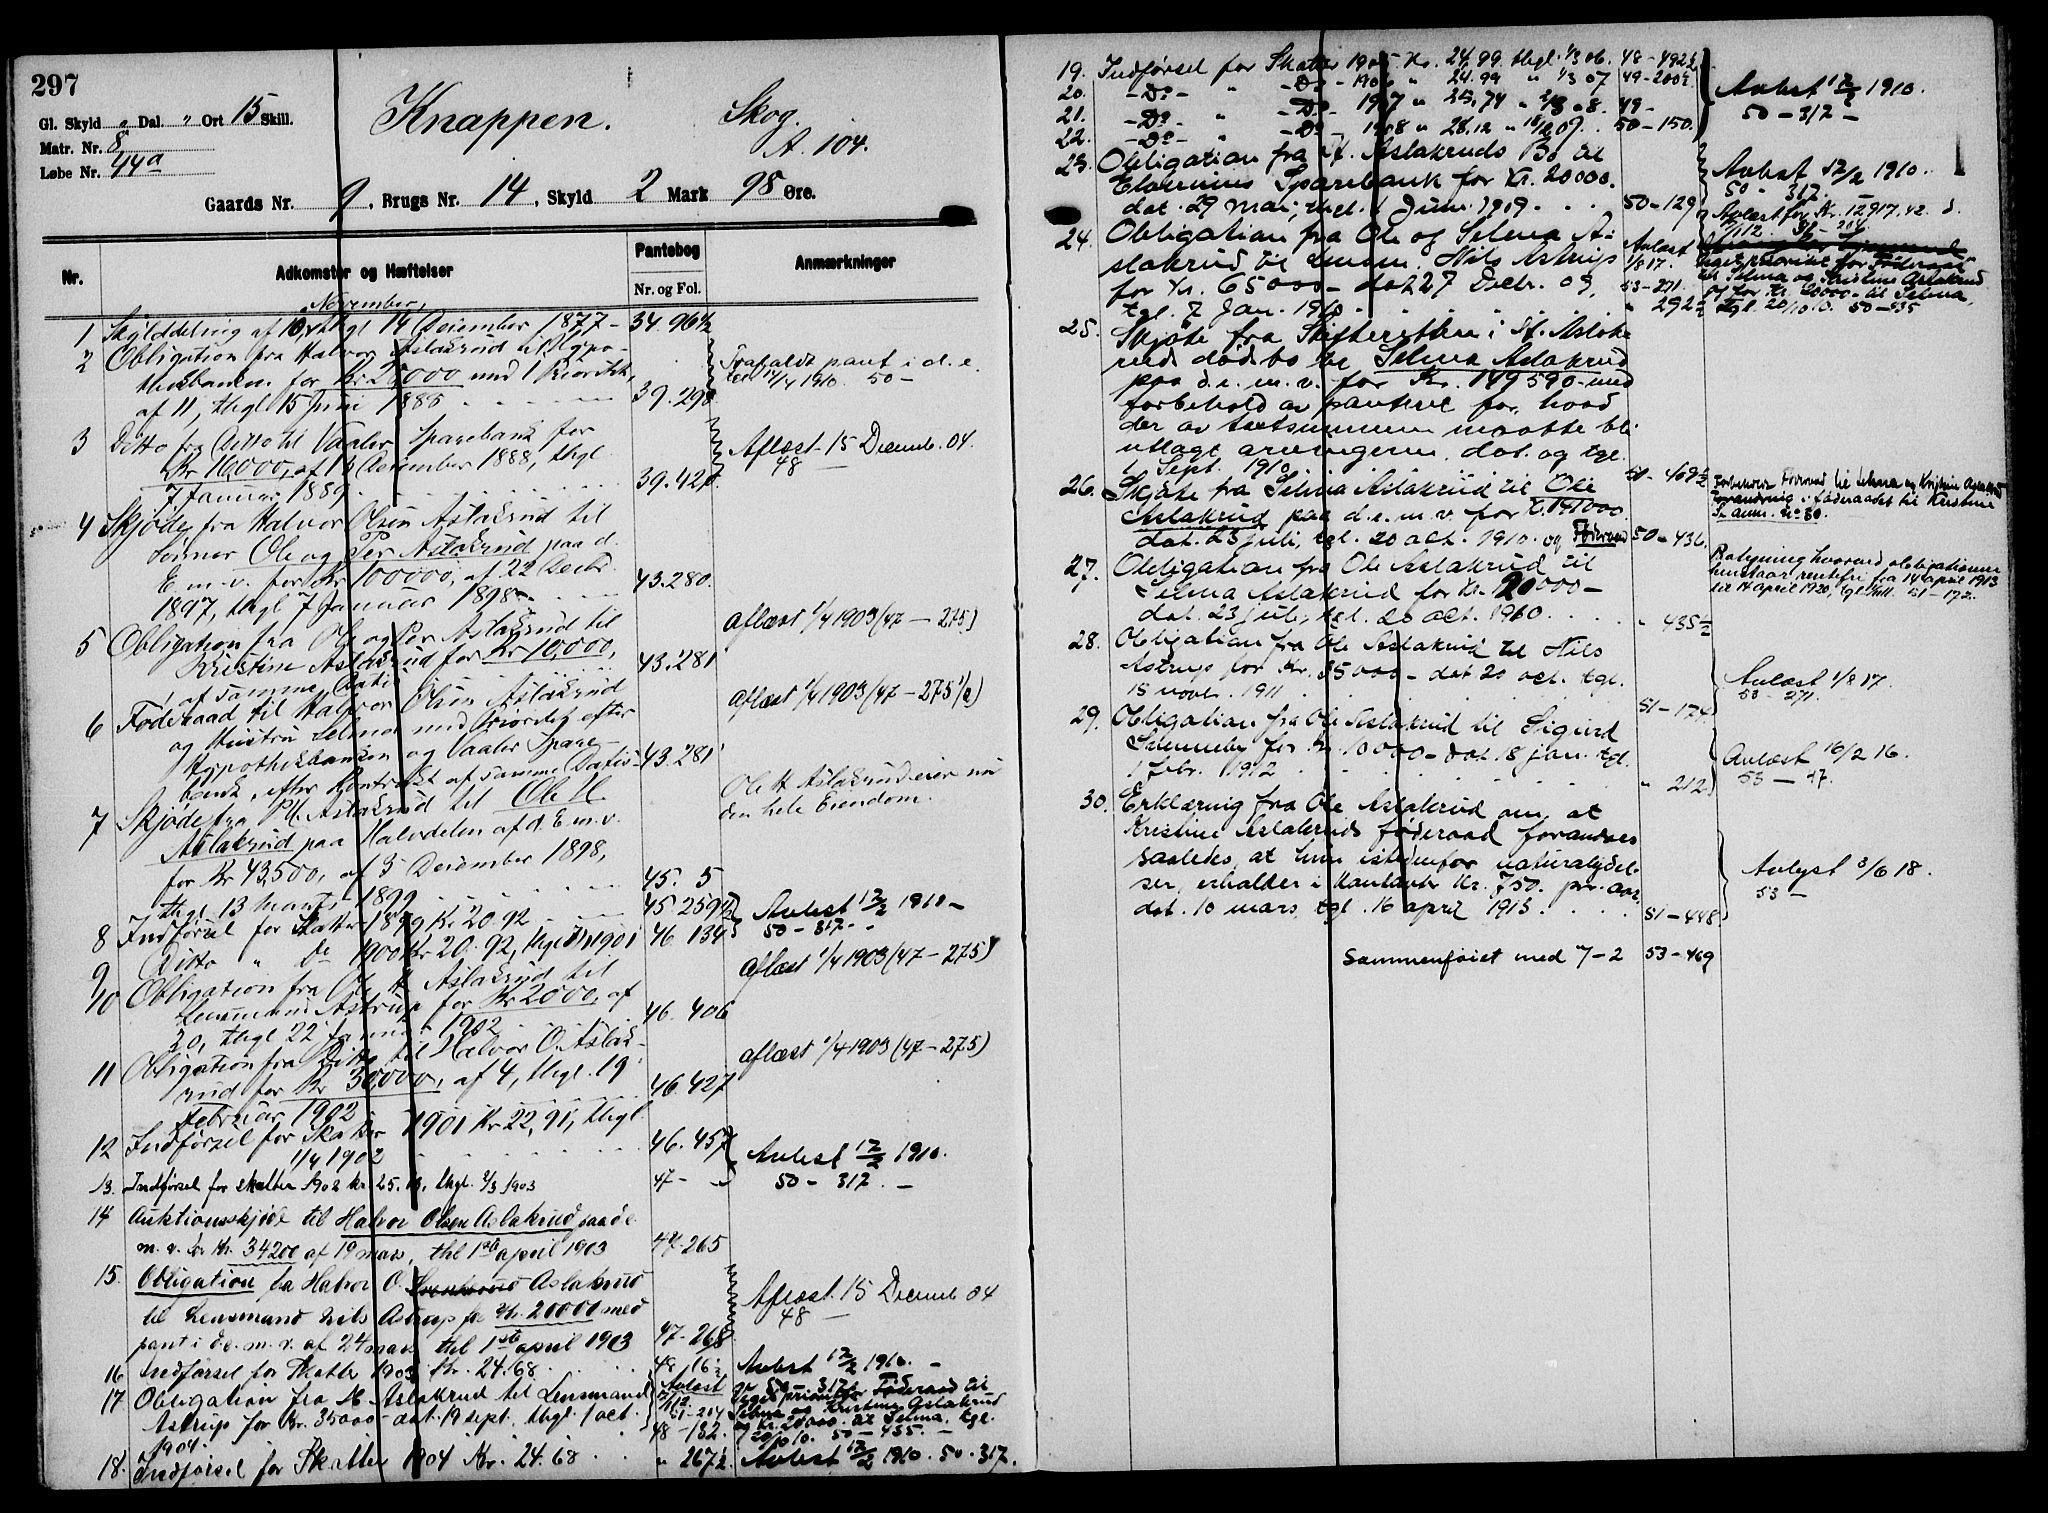 297
Gl. Skyld „ Dal. „ Ort 15 Skill.
Matr. Nr. 8
Løbe Nr. 44a
Knappen.
Skog.
A. 104.
Gaards Nr. 9, Brugs Nr. 14, Skyld 2 Mark 98 Øre.
Nr.
Adkomster og Hæftelser
Pantebog
Nr. og Fol.
Anmærkninger
November,
1 Skylddeling af 10, thgl 14 Desember 1877 - 34.96½
2 Obligation fra Halvor Aslakrud til Hypo-
thekbanken for Kr 25000 med 1 Prioritet,
af 11, thgl 15 Juni 1888 39.290
Frafaldt pant i d. e.
tgl 14/4 1910. 50 -
3 Ditto fra Ditto til Vaaler Sparebank for
Kr 16000, af 13 Desember 1888, thgl
7 Januar 1889. 39.420.
Aflæst 15 Decemb. 04.
48 —
4 Skjøde fra Halvor Olsen Aslakrud til
Sønner Ole og Per Aslakrud paa d.
E. m. v. for Kr 100000, af 22 Decbr.
1897, thgl 7 Januar 1898. 43.280.
5 Obligation fra Ole og Per Aslakrud til
Kristine Aslakrud for Kr 10,000,
af samme Datis 43.281
aflæst 1/4 1903 (47 - 275)
6 Føderaad til Halvor Olsen Aslakrud
og Hustru Selma med Prioritet efter
Hypothekbanken og Vaaler Spare-
bank, efter Kontrakt af samme Datis - 43.281
aflæst 1/4 1903 (47 - 275½)
7 Skjøde fra P.H. Aslakrud til Ole H.
Aslakrud paa Halvdelen af d. E. m. v.
for Kr 43,500, af 3 Desember 1898,
thgl. 13 marts 1899 45. 5
Ole H Aslakrud eier nu
den hele Eiendom.
8 Indførsel for Skatter 1899 Kr 20.92 45 259½
9 Ditto „ Do 1900 Kr 20.92, thgl 1901 46 134
Avlest 12/2 1910 -
50 - 317 -
10 Obligation fra Ole H Aslakrud til
Lensmann Astrup for Kr 2000, af
20, thgl 22 januar 1902 46. 406
aflæst 1/4 1903 (47 - 275)
11 Obligation fra Ditto til Halvor O. Aslak-
rud for Kr 30,000, af 4, thgl. 19
februar 1902 46.427
aflæst 1/4 1903 (47 - 275)
12 Indførsel for Skatter 1901 Kr 22,91, thgl
1/4 1902 46.457
13. Indførsel for skatter 1902 kr. 25. , thgl. 1/3 1903 47 -
Avlest 12/2 1910.
50 - 317. -
14 Auktionsskjøde til Halvor Olsen Aslakrud paa d e
m. v. for kr. 34200 af 19 mars, thl 1ste april 1903 47-265
15. Obligation fra Halvor O. Aslakrud
til Lensmand Nils Astrup for Kr. 20000 med
pant i d e. m. v. af 24 mars thl 1ste april 1903 47-268
Aflæst 15 Decemb 04
48 —
16 Indførsel for Skatter 1903 Kr. 24.68 48 16½
Avlest 12/2 1910. -
50 - 317
17 Obligation fra H. Aslakrud til Lensmand
Astrup for Kr. 35000 - dat. 19 sept. thgl. 1 oct.
1904. 48 -132.
Avlæst
7/11 12
51 - 204
Veget prioritet for Føderaad til
Selma og Kristine Aslakrud
og Kr. 20000 til Selma, tgl.
20/10 10. 50 - 435. -
18. Indførsel for Skatter 1904 Kr. 24.68 „ 267½
Avlest 12/2 1910. 50. 317.
19. Indførsel for Skatter 1905 Kr. 24.99. thgl. 1/3 06. 48 - 492½
20. - Do - „ - Do - 1906 „ 24.99 „ 1/3 07 49 - 200½
21. - Do - „ - Do - 1907 „ 25,74 „ 2/3 08. 49 -
22. - Do - „ - Do - 1908 „ 28,12 „ 16/2 09. 50 - 150.
Avlest 12/2 1910.
50 - 317 -
23. Obligation fra H. Aslakruds Bo til
Elverums Sparebank for Kr. 20000.
dat. 29 mai, thgl. 1 Juni 1909 50 - 129
Avlest 12/2 1910.
50 - 317. -
24. Obligation fra Ole og Selma A-
slakrud til Lensm. Nils Astrup
for Kr. 65000 - dat 27 Decbr. 09,
tgl. 7 Jan. 1910 „ 292½
Avlæst
1/8 17.
53 - 271.
Avlæst for Kr. 12917,42
7/11 12. 51 - 204
Veget prioritet for Føderaad
til Selma og Kristine Aslakrud
og for Kr. 20000 - til Selma,
tgl. 20/10 10. 50 - 435
25. Skjøte fra Skifteretten i H. Aslak-
ruds dødsbo til Selma Aslakrud
paa d. e. m. v. for Kr. 149590 - med
forbehold av panteret for hvad
der av kjøtsummen maatte bli
utlagt arvingerne, dat. og tgl.
1 Sept. 1910 51 - 409½
26. Skjøte fra Selma Aslakrud til Ole
Aslakrud paa d. e. m. v. for
dat. 23 juli, tgl. 20 oct. 1910. og Føderaad 50 - 436.
Forbeholdt Føderaad til Selma og Kristine Aslakrud
Forandring i føderaadet til Kristine
Se anm. No 30.
27. Obligation fra Ole Aslakrud til
Selma Aslakrud for Kr. 20000 -
dat. 23 juli, tgl. 20 oct. 1910. „ 435½
Paategning hvorved obligationen
henstaar rentefri fra 14 april 1913
til 14 april 1920, tgl. 51 - 172.
28. Obligation fra Ole Aslakrud til Nils
Astrup for Kr. 35000 - dat 20 oct. tgl.
15 novbr. 1911 51 - 174
Avlæst 1/8 17.
53 - 271.
29. Obligation fra Ole Aslakrud til Sigurd
for Kr. 10000 - dat. 8 jan. tgl.
1 febr. 1912 „ 212
Avlæst 16/2 16.
53 - 47.
30. Erklæring fra Ole Aslakrud om, at
Kristine Aslakruds føderaad forandres
saaledes, at hun istedenfor naturalydel-
ser, erholder i kontanter Kr. 750. pr. aar,
dat. 10 mars, tgl. 16 april 1913. 51 - 448
Avlyst 3/6 18.
53 -
Sammenføiet med 7 - 2 53 - 469